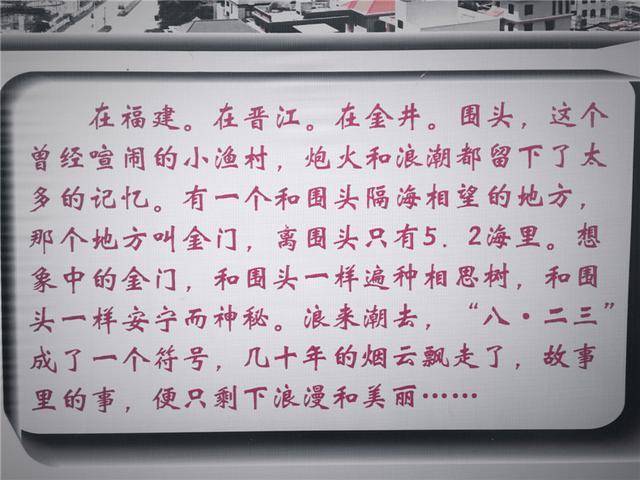 在福建。在晋江。在金井。围头，这个
曾经喧闹的小渔村，炮火和浪潮都留下了太
多的记忆。有一个和围头隔海相望的地方，
那个地方叫金门，离围头只有5．2海里。想
象中的金门，和围头一样遍种相思树，和围
头一样安宁而神秘。浪来潮去，“八·二三”
成了一个符号，几十年的烟云飘走了，故事
里的事，便只剩下浪漫和美丽……